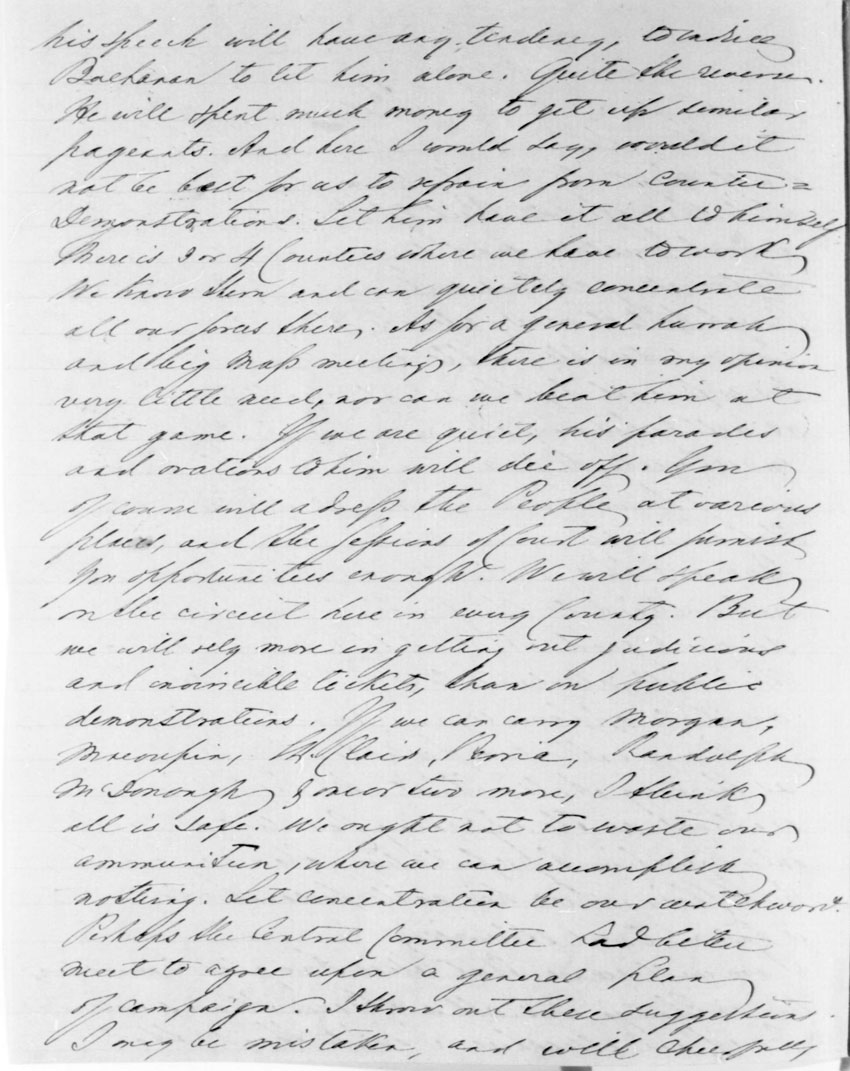 his speech will have any tendency, to induce
Buchanan to let him alone. Quite the reverse.
He will spent much money to get up similar
pagents. And here I would say, would it
not be best for us to refrain from Counter=
Demonstrations. Let him have it all to himself
There is 3 or 4 Counties where we have to work
We know them and can quietely concentrate
all our forces there. As for a general hurrah
and big mass meetings, there is in my opinion
very little need, nor can we beat him at
that game. If we are quiet, his parades
and ovations to him will die off. You
of course will adress the People at various
places, and the Sessions of Court will furnish
you opportunitees enough. We will speak
on the circuit here in every County. But
we will rely more in getting out judicious
and invincible tickets, than on public
demonstrations. If we can carry Morgan,
Macoupin, St. Clair, Peoria, Randolph
McDonough & one or two more, I think
all is safe. We ought not to waste our
ammunition, where we can accomplish
nothing. Let concentration be our watchword.
Perhaps the Central Committee had better
meet to agree upon a general plan
of campaign. I throw out these suggestions.
I may be mistaken, and will cheerfully